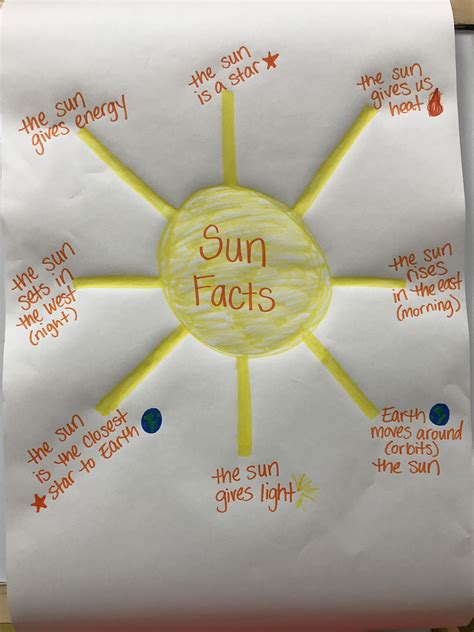 the sun
is a star
the sun
gives us
heat
the sun
rises
in the east
(morning)
Earth
moves around
(orbits)
the sun
the sun
gives light
the sun
is the closest
star to Earth
the sun
sets in
the west
(night)
the sun
gives energy
Sun
Facts